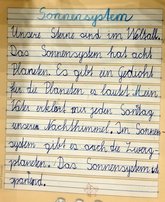 Sonnensystem
Unsere Sterne sind im Weltall.
Das Sonnensystem hat acht
Planeten. Es gibt ein Gedicht
für die Planeten es lautet Mein
Vater erklärt mir jeden Sonntag
unseren Nachthimmel. Im Sonnen-
system gibt es auch die Zwerg-
planeten. Das Sonnensystem ist
spannend.